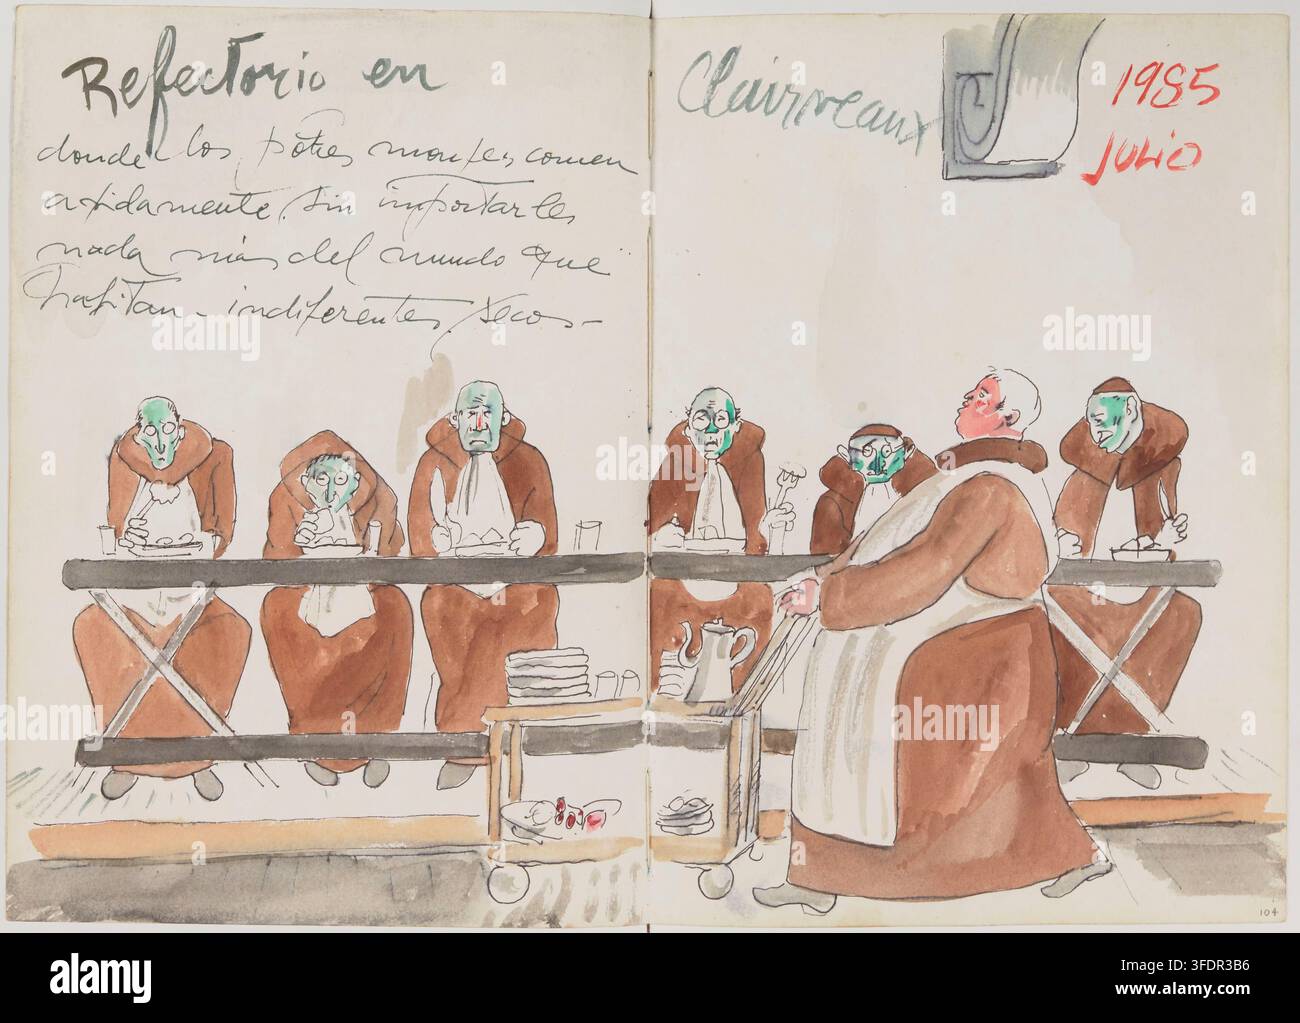 Refectorio en Clairveaux
1985
JULIO
donde los pobres monjes comen
avidamente, sin importarles
nada más del mundo que
habitan - indiferentes, secos -
104
alamy
Image ID: 3FDR3B6
www.alamy.com